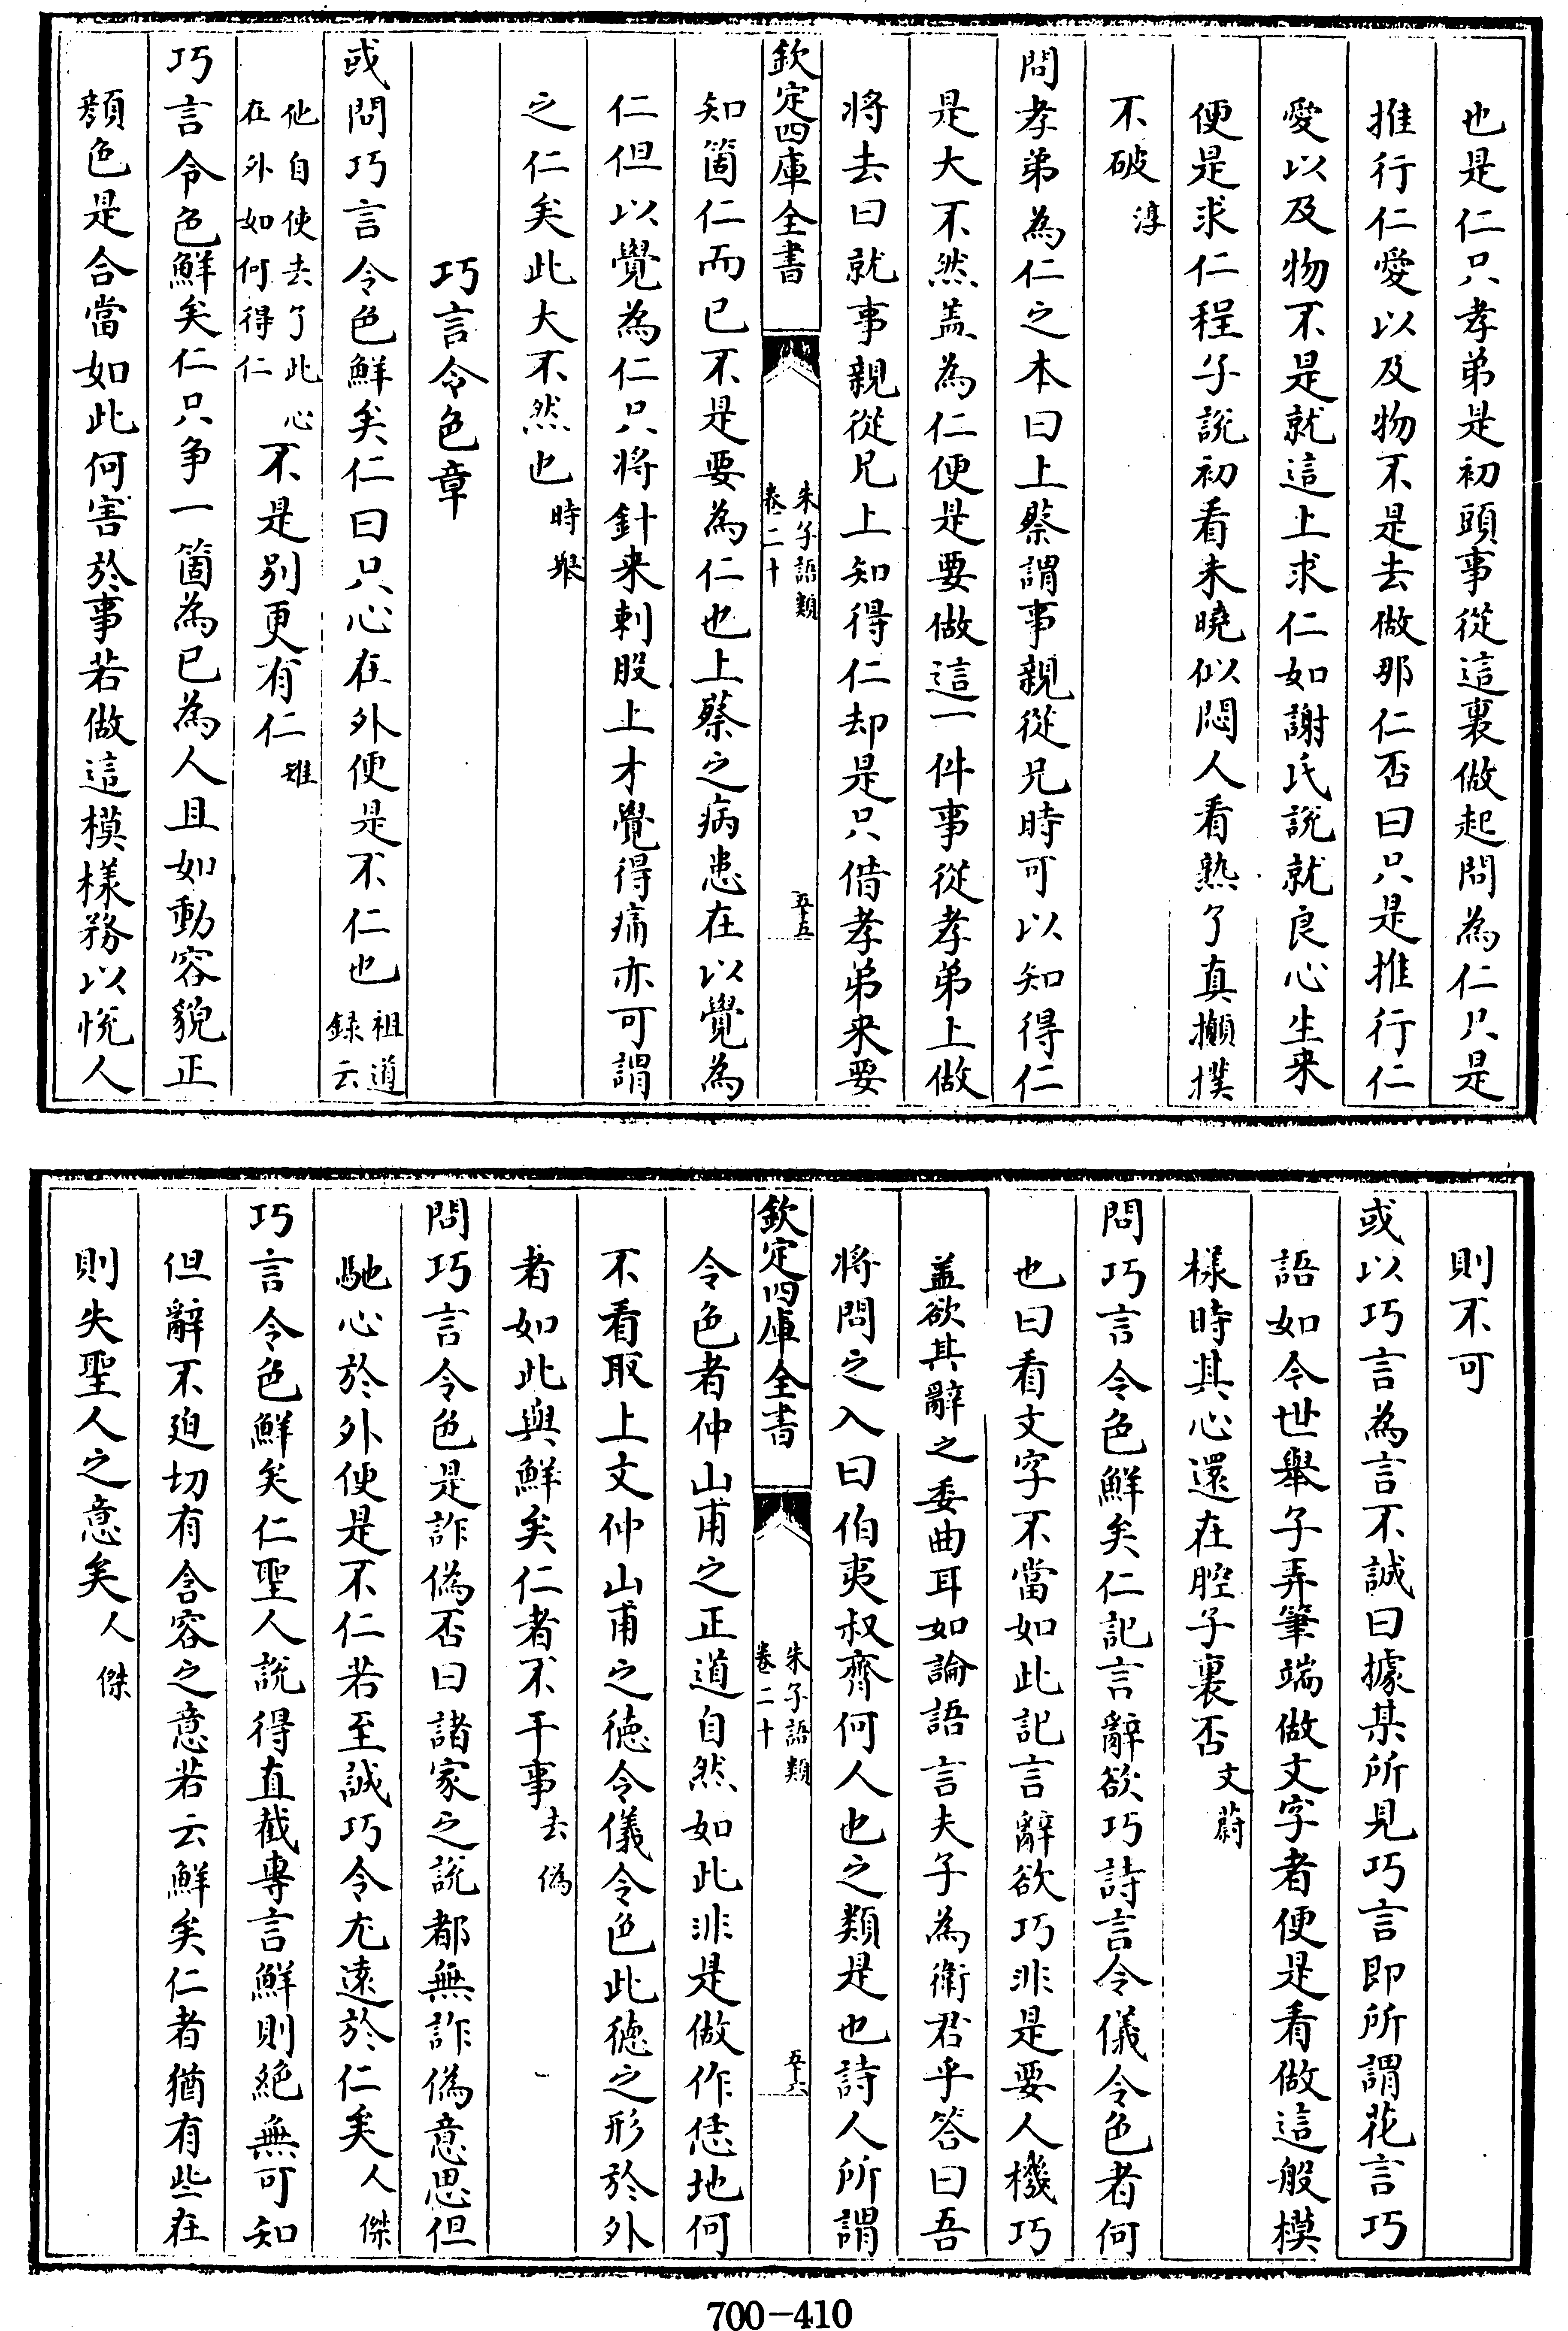 也是仁只孝弟是初頭事從這裏做起問為仁只是
推行仁愛以及物不是去做那仁否曰只是推行仁
愛以及物不是就這上求仁如謝氏說就良心生来
便是求仁程子說初看未曉似悶人看熟了真攧撲
不破淳
問孝弟為仁之本曰上蔡謂事親從兄時可以知得仁
是大不然盖為仁便是要做這一件事從孝弟上做
将去曰就事親從兄上知得仁却是只借孝弟来要
欽定四庫全書
朱子語類
卷二十
五十五
知箇仁而已不是要為仁也上蔡之病患在以覺為
仁但以覺為仁只将針来刺股上才覺得痛亦可謂
之仁矣此大不然也時舉
巧言令色章
或問巧言令色鮮矣仁曰只心在外便是不仁也祖道録云
他自使去了此心在外如何得仁不是别更有仁雉
巧言令色鮮矣仁只争一箇為已為人且如動容貌正
顔色是合當如此何害於事若做這模樣務以悅人
則不可
或以巧言為言不誠曰據某所見巧言即所謂花言巧
語如今世舉子弄筆端做文字者便是看做這般模
樣時其心還在腔子裏否文蔚
問巧言令色鮮矣仁記言辭欲巧詩言令儀令色者何
也曰看文字不當如此記言辭欲巧非是要人機巧
盖欲其辭之委曲耳如論語言夫子為衛君乎答曰吾
将問之入曰伯夷叔齊何人也之類是也詩人所謂
欽定四庫全書
朱子語類
卷二十
五十六
令色者仲山甫之正道自然如此非是做作恁地何
不看取上文仲山甫之徳令儀令色此徳之形於外
者如此與鮮矣仁者不干事去偽
問巧言令色是詐偽否曰諸家之說都無詐偽意思但
馳心於外便是不仁若至誠巧令尤逺於仁矣人傑
巧言令色鮮矣仁聖人說得直截專言鮮則絶無可知
但辭不迫切有含容之意若云鮮矣仁者猶有些在
則失聖人之意矣人傑
700-410